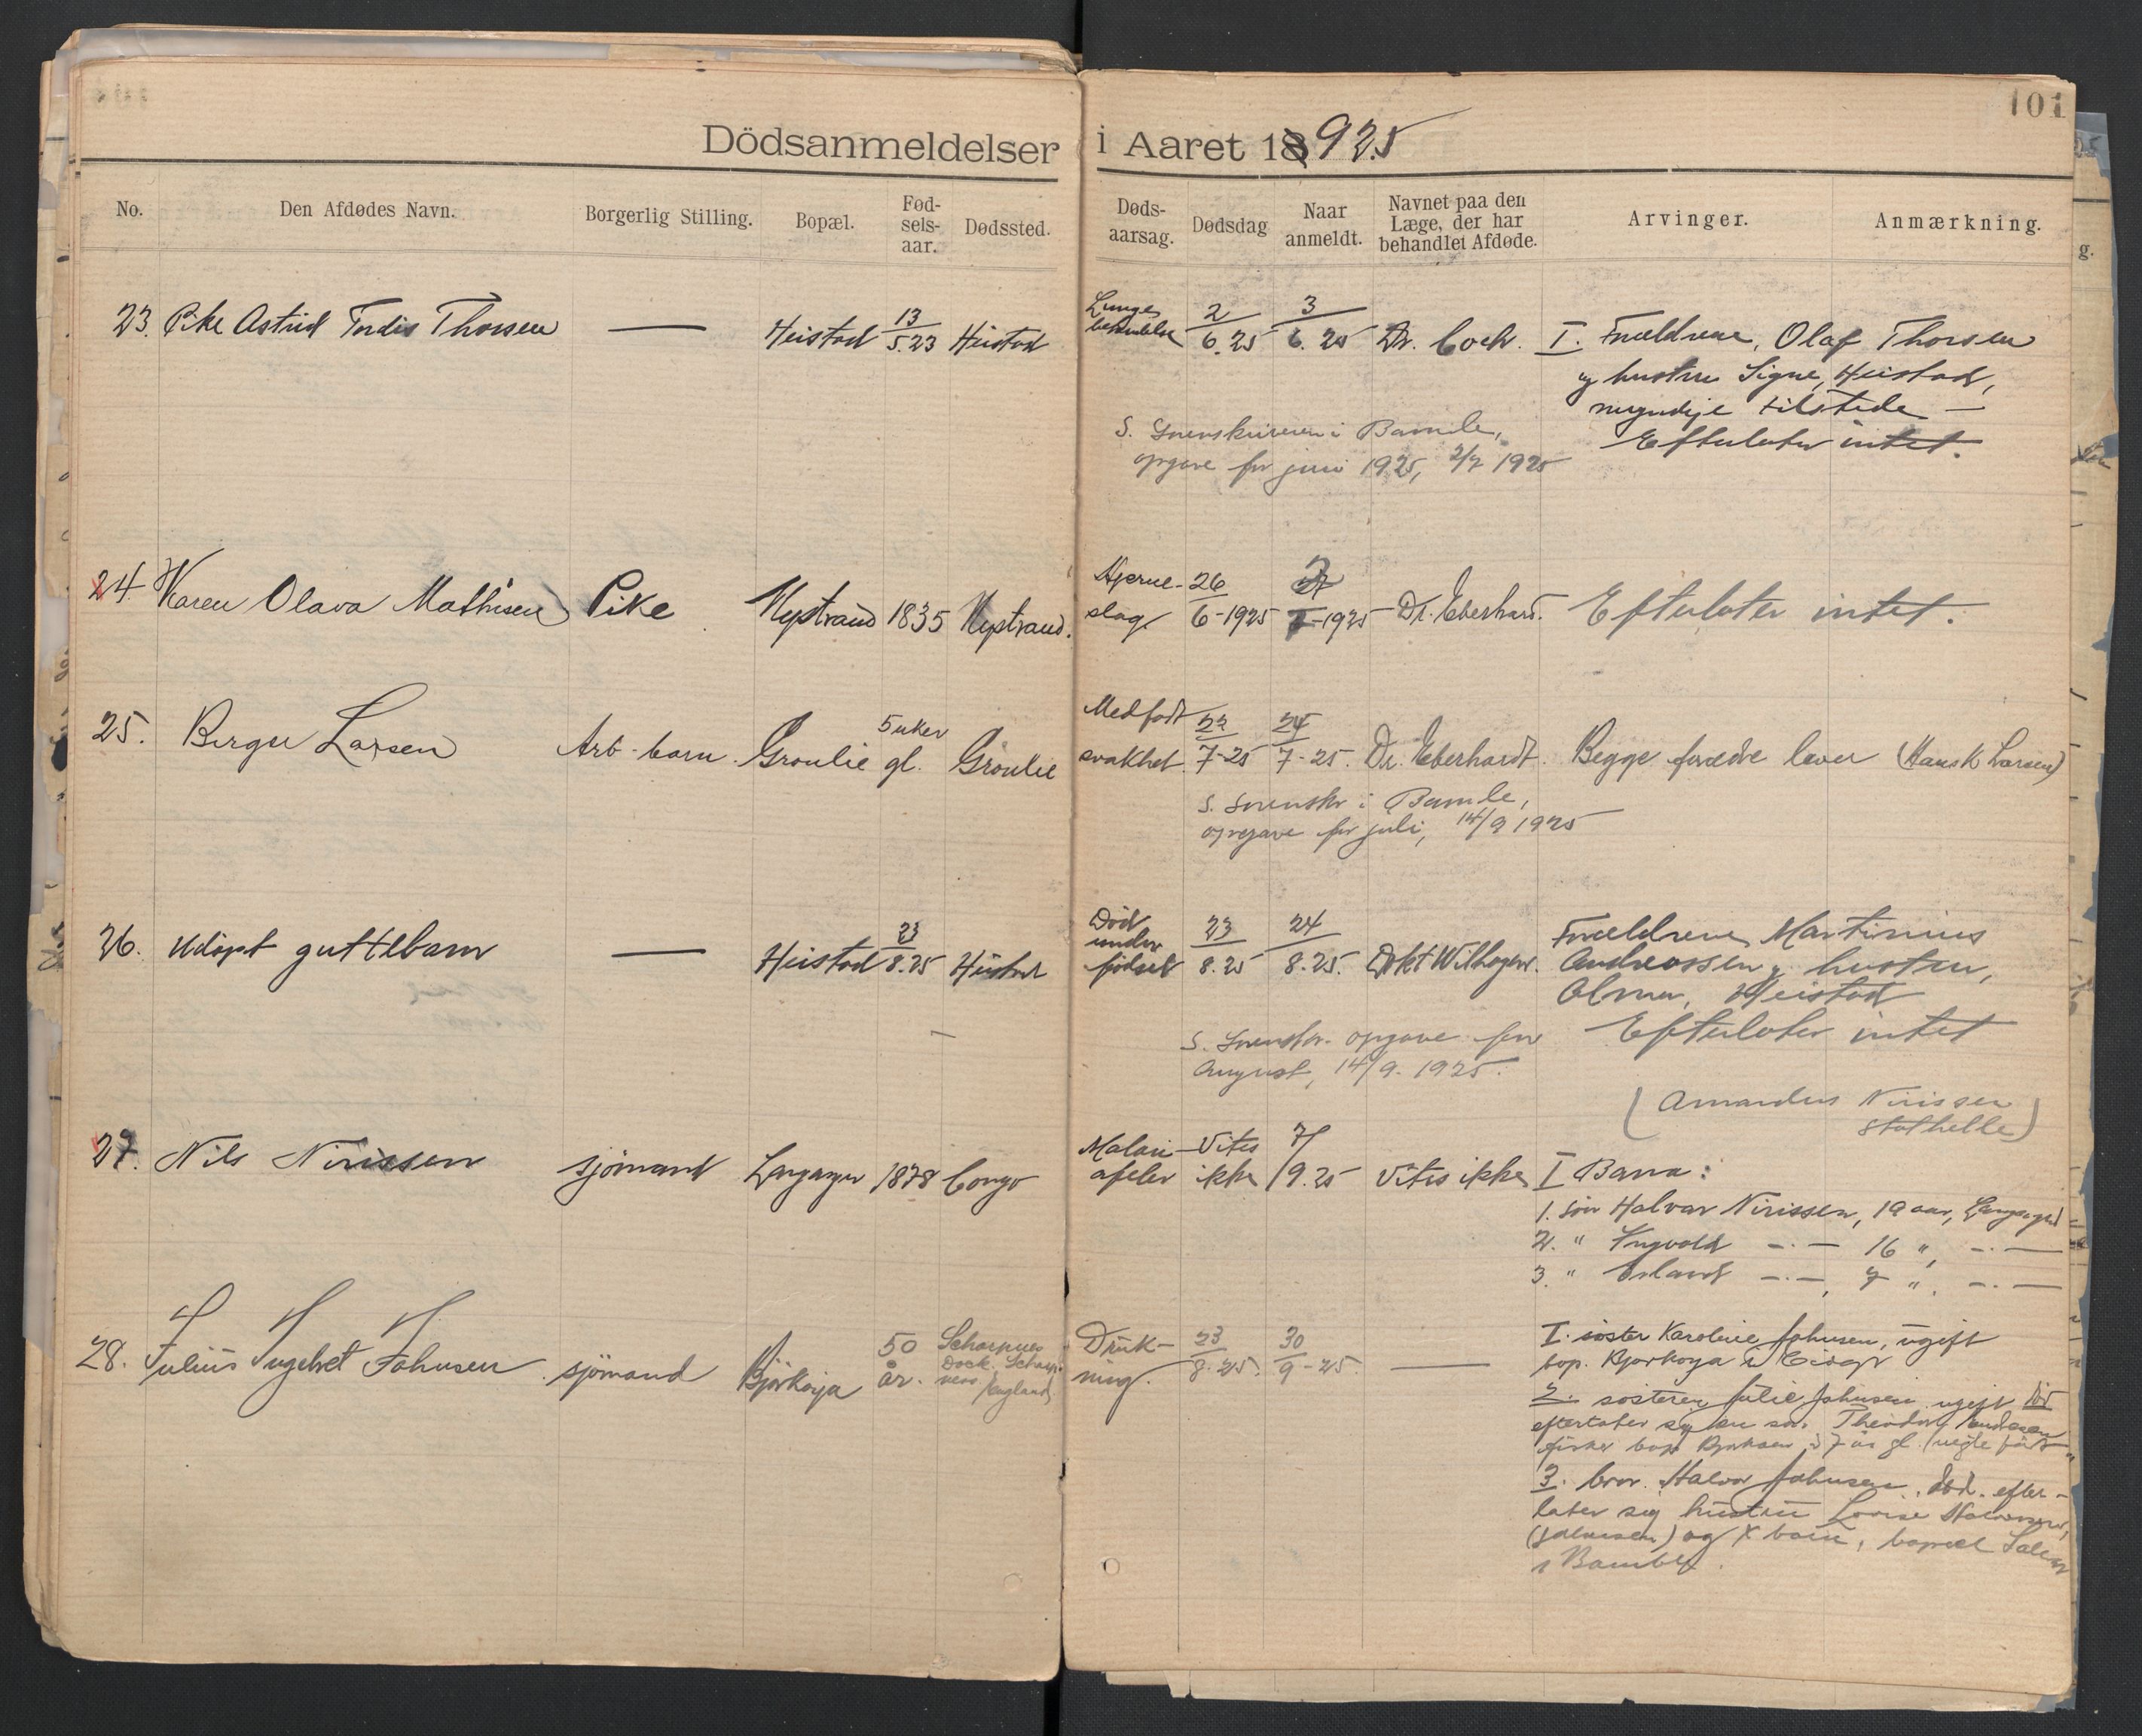 101
Dödsanmeldelser i Aaret 1925
No. Den Afdødes Navn. Borgerlig Stilling. Bopæl. Fød-sels-aar. Dødssted. Døds-aarsag. Dødsdag Naar anmeldt. Navnet paa den Læge, der har behandlet Afdøde. Arvinger. Anmærkning.
23. Pike Astrid Tordis Thorsen — Heistad 13/5.23 Heistad Lunge 2/6.25 3/6.25 Dr. Coch. I. Forældrene, Olaf Thorsen
og hustru Signe, Heistad,
myndige tilstede —
Efterlater intet.
S. Sorenskriveren i Bamle,
opgave for juni 1925, 2/7 1925
24. Karen Olava Mathisen Pike Nystrand 1835 Nystrand. Hjerneslag. 26/6-1925 -1925 Dr. Eberhard. Efterlater intet.
25. Birger Larsen Arb. barn. Grønlie 5 uker gl. Grønlie Medfødt svakhet. 22/7-25 24/7-25. Dr. Eberhardt. Begge forældre lever (Hans K Larsen)
S. Sorenskr i Bamle,
opgave for juli, 14/9 1925
26. Udöpt guttebarn — Heistad 23/8.25 Heistad Död under födsel 23/8.25 24/8.25. Forældrene, Martinius
Andreassen og hustru,
Alma, Heistad
Efterlater intet
S. Sorenskr. opgave for
August, 14/9. 1925.
(Amandus Nirissen
Stathelle)
27. Nils Nirissen sjömand Langangen 1878 Congo Malari- Vites ikke 7/9.25 Vites ikke I Barn:
1. sön Halvar Nirissen, 19 aar, Langangen
2. " Yngvald —·— 16 ", —·—
3. " Erland —·—, 7 ", —·—
28. Julius Ingebret Johnsen sjömand Bjørkøya 50 år. Dock England Drukning. 23/8.25. 30/9-25. — I. søster Karoline Johnsen, ugift
bop. Bjørkøya i Eidanger
2. søsteren Julie Johnsen ugift död
efterlater sig en søn Theodor
fisker bop Bjørkøen
3. bror. Halvor Johnsen. död. efter-
later sig hustru Lovise Halvorsen,
(Johnsen) og barn, bopæl
i Bamble.